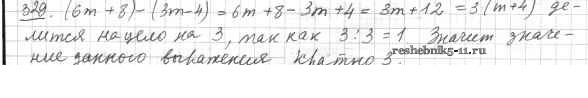 329. (6m + 8) - (3m - 4) = 6m + 8 - 3m + 4 = 3m + 12 = 3 (m + 4) де-
лится нацело на 3, так как 3 : 3 = 1 Значит значе-
ние данного выражения кратно 3.
www.reshebnik5-11.ru